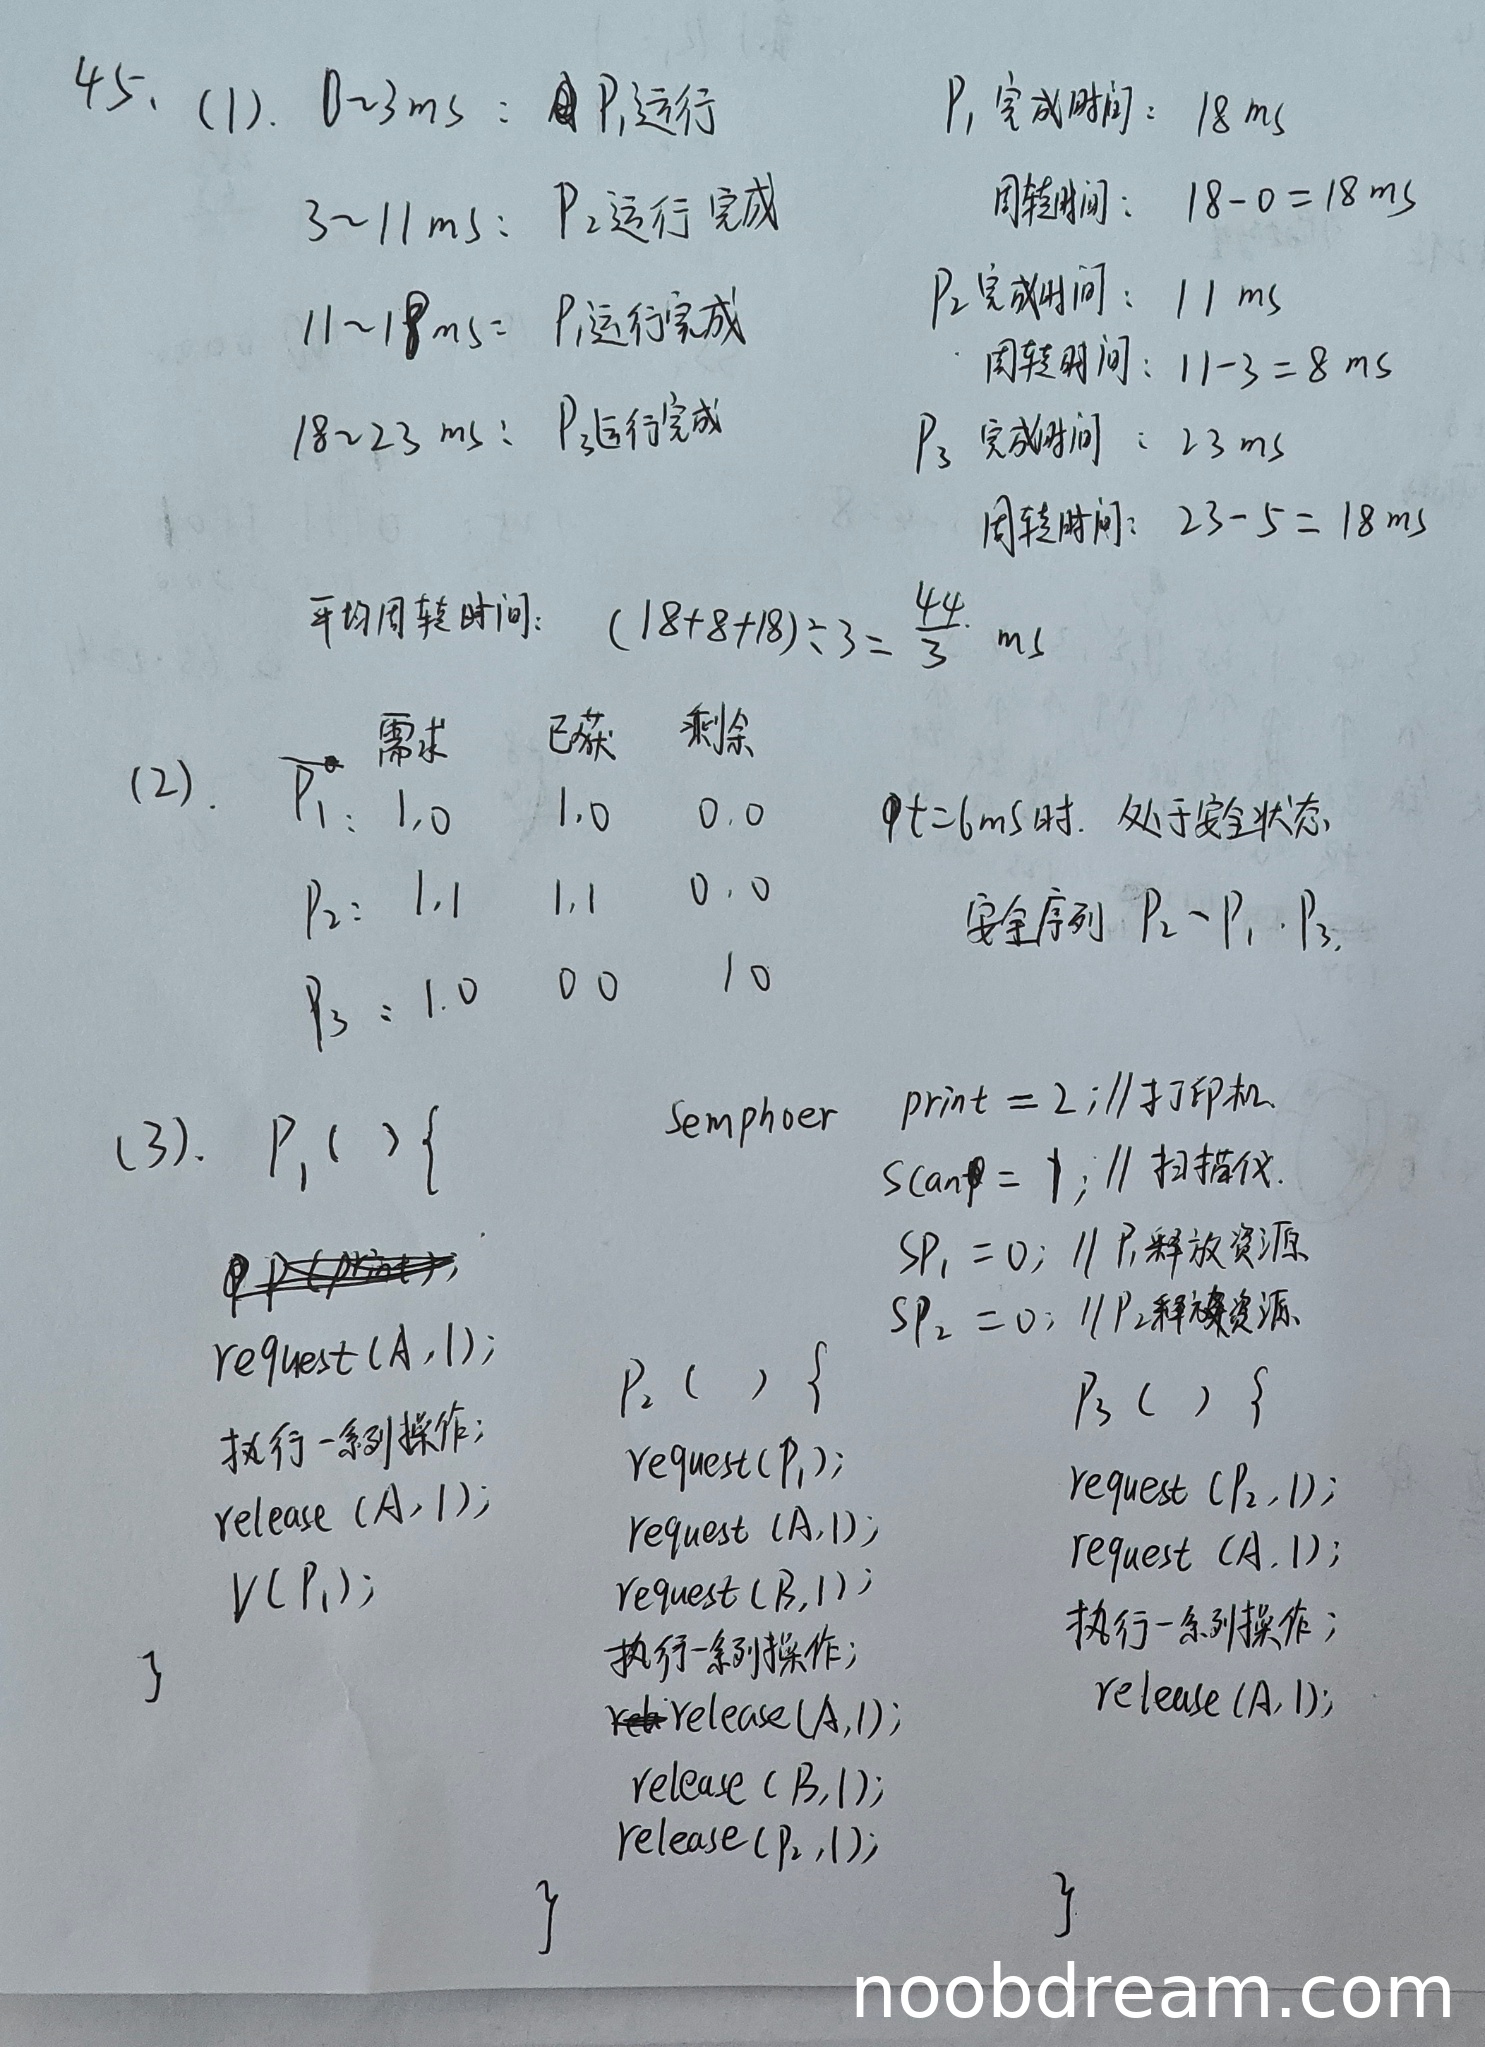 45.
(1). 0~3ms: P₁运行
3~11ms: P₂运行完成
11~18ms= P₁运行完成
18~23ms: P₃运行完成
P₁完成时间: 18ms
周转时间: 18-0=18ms
P₂完成时间: 11ms
周转时间: 11-3=8ms
P₃完成时间: 23ms
周转时间: 23-5=18ms
平均周转时间: (18+8+18)÷3=44/3 ms
(2). 需求 已获 剩余
P₁: 1.0 1.0 0.0
P₂: 1,1 1,1 0.0
P₃: 1.0 00 10
t=6ms时. 处于安全状态
安全序列 P₂、P₁.P₃.
(3). P₁( ){
request(A,1);
执行一系列操作;
release(A,1);
V(P₁);
}
semphoer print=2;//打印机.
scan=1;//扫描仪.
SP₁=0;//P₁释放资源
SP₂=0;//P₂释放资源
P₂( ){
request(P₁);
request(A,1);
request(B,1);
执行一系列操作;
release(A,1);
release(B,1);
release(P₂,1);
}
P₃( ){
request(P₂,1);
request(A,1);
执行一系列操作;
release(A,1);
}
noobdream.com